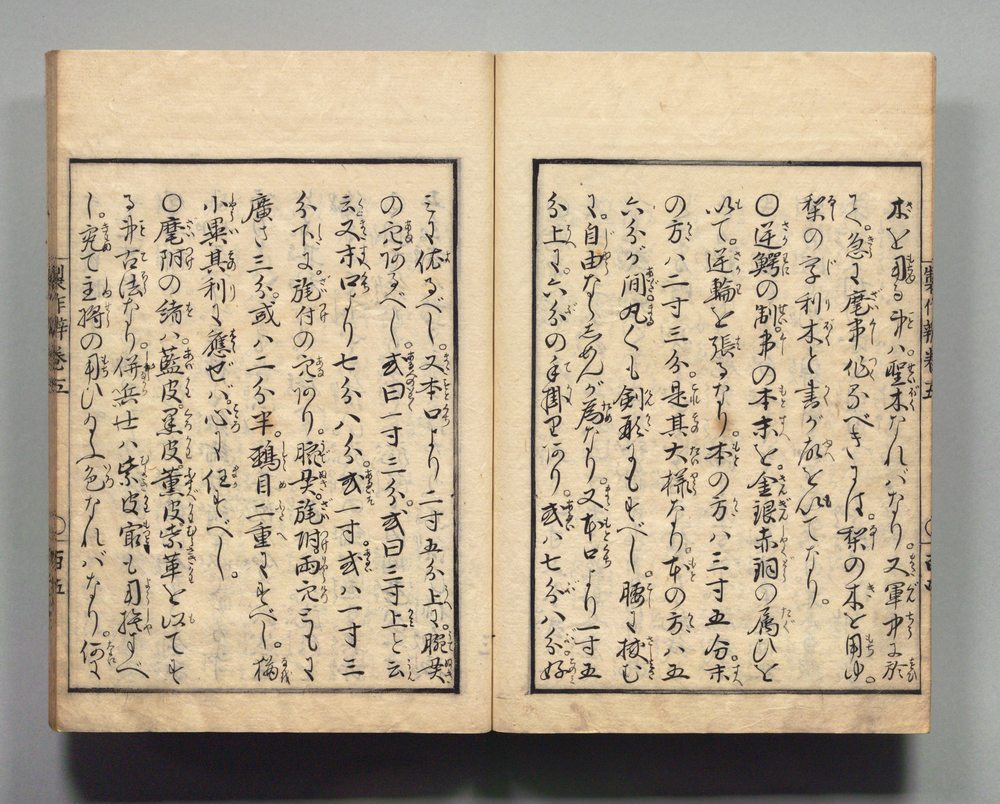 木を用る事ハ聖木なれバなり。又軍中に於
て。急に麾事作るべきには。梨の木を用ゆ。
梨の字利木と書が故を以てなり。
〇逆鰐の制事の本末を。金銀赤銅の属ひを
以て。逆輪を張るなり。本の方ハ三寸五分末
の方ハ二寸三分。是其大様なり。本の方ハ五
六分が間丸くも剣形にもすべし。腰に挟む
に。自由ならしめんが為なり。又本口より一寸五
分上に。六分の手掛里あり。或ハ七分八分好
製作辨巻五
百四
ミに依るべし。又本口より二寸五分上に。腕貫
の穴あるべし。或曰一寸三分。或曰三寸上と云
云又末口より七分八分或一寸或ハ一寸三
分下に。麾付の穴あり。腕貫。麾附両穴ともに
廣さ三分。或ハ二分半。鵐目二重にすべし。
小異其利に應ぜバ。心に任すべし。
〇麾附の緒ハ。藍皮黒皮。薫皮紫革を以てす
る事古法なり。併兵士ハ紫皮
し。究て主将の用ひ色なれバなり。何に
製作辨巻五
百五